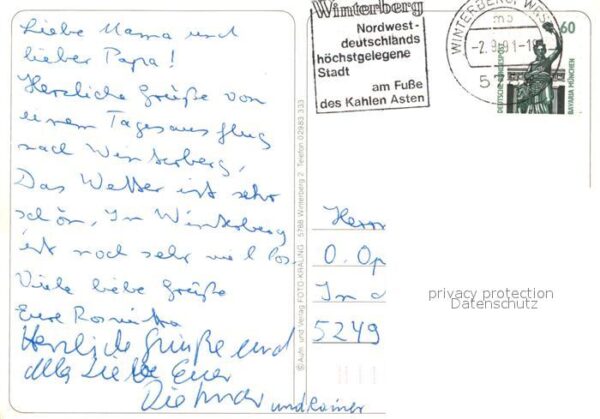 Liebe Mama und
lieber Papa!
Herzliche Grüße von
einem Tagesausflug
nach Winterberg,
Das Wetter ist sehr
schön, In Winterberg
ist noch sehr viel los.
Viele liebe Grüße
Eure Romitha
Herzliche Grüße und
alles Liebe Euer
Dietmar und Rainer
© Aufn. und Verlag FOTO-KRALING 5788 Winterberg 2 Telefon 02983 333
Winterberg
Nordwest-
deutschlands
höchstgelegene
Stadt
am Fuße
des Kahlen Asten
WINTERBERG, WESTF
mb
-2.9.91-18
5
60
DEUTSCHE BUNDESPOST
BAVARIA MÜNCHEN
Herrn
O. Op
In d
5249
privacy protection
Datenschutz